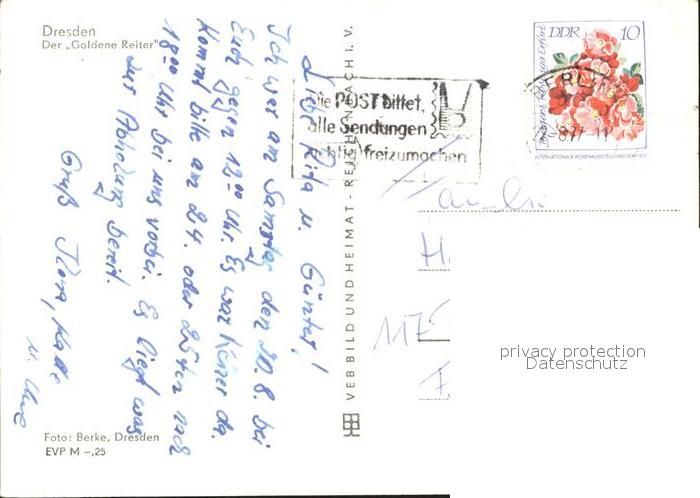 Dresden
Der „Goldene Reiter"
Liebe Rita u. Günter!
Ich war am Samstag den 20.8. bei
Euch gegen 12⁰⁰ Uhr. Es war keiner da.
Kommt bitte am 24. oder 25ten nach
18⁰⁰ Uhr bei uns vorbei. Es liegt was
zur Abholung bereit.
Gruß
u. Uwe
Foto: Berke, Dresden
EVP M –,25
VEB BILD UND HEIMAT · REICHENBACH I. V.
Die POST bittet,
alle Sendungen
richtig freizumachen
DDR 10
INTERNATIONALE ROSENAUSSTELLUNG DDR 1972
BERLIN
An
H
1175
privacy protection
Datenschutz